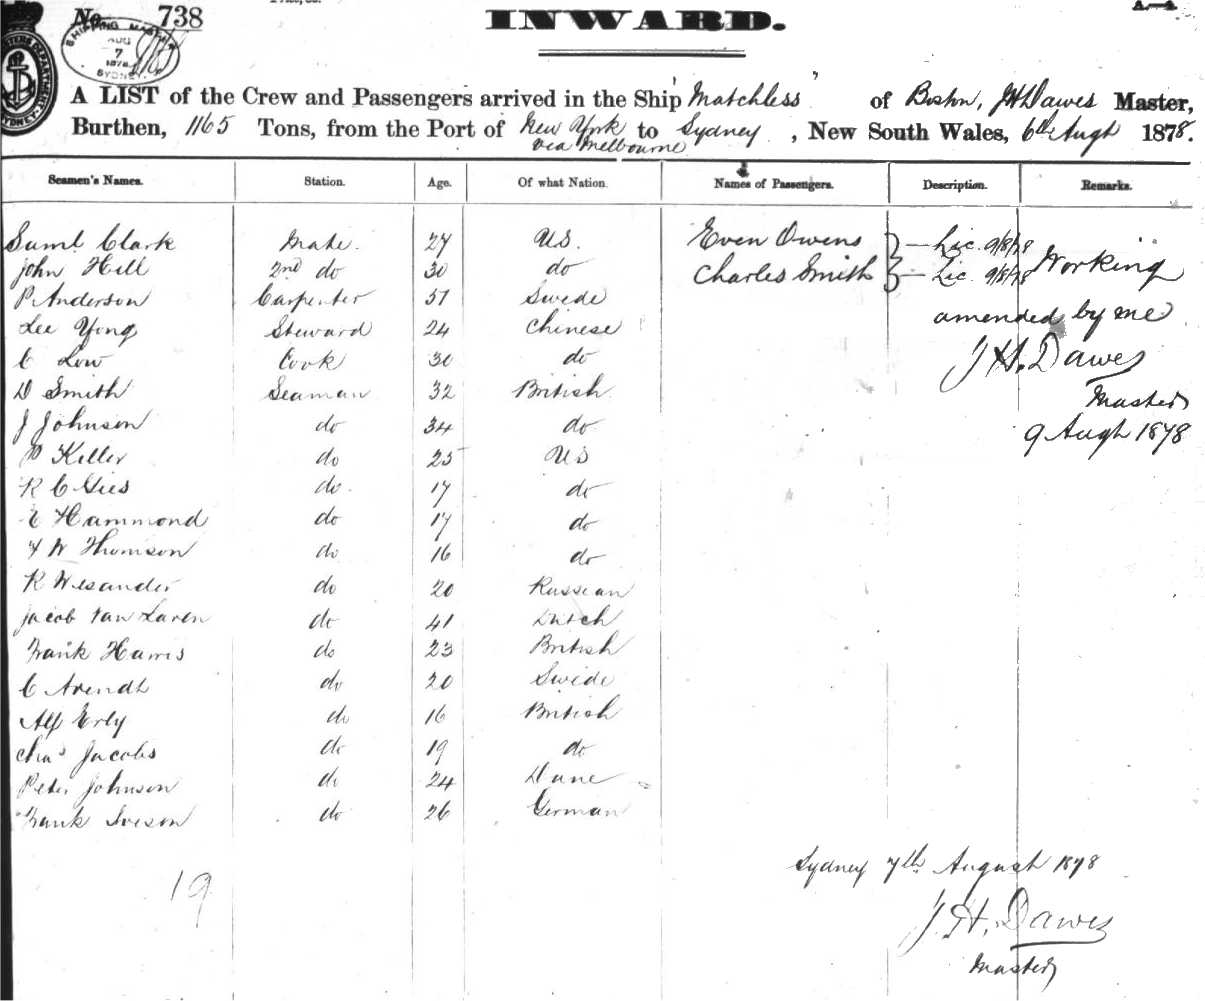 No. 738
INWARD.
SHIPPING MASTER
AUG
7
1878
SYDNEY
A LIST of the Crew and Passengers arrived in the Ship "Matchless" of Boston, J H Dawes Master,
Burthen, 1165 Tons, from the Port of New York to Sydney, New South Wales, 6th Augt 1878.
via Melbourne
Seamen's Names. Station. Age. Of what Nation. Names of Passengers. Description. Remarks.
Saml Clark Mate. 27 US. Even Owens — Lic. 9/8/78
John Hill 2nd do 30 do Charles Smith — Lic. 9/8/78 Working
P. Anderson Carpenter 51 Swede
Lee Yong Steward 24 Chinese amended by me
C Low Cook 30 do J H. Dawes
D Smith Seaman 32 British Master
J Johnson do 34 do 9 Augt 1878
P Keller do 25 US
R C Gies do. 17 do
E Hammond do 17 do
W Thomson do 16 do
R Wesander do 20 Russian
Jacob Van Laren do 41 Dutch
Frank Harris do 23 British
C Arendt do 20 Swede
Alf Erly do 16 British
Chas Jacobs do 19 do
Peter Johnson do 24 Dane
Frank Iveson do 26 German
Sydney 7th August 1878
19
J. H. Dawes
Master